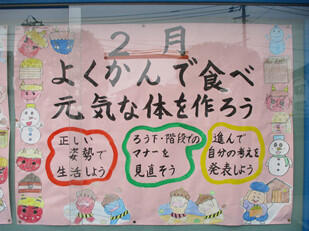 2月
よくかんで食べ
元気な体を作ろう
正しい
姿勢で
生活しよう
ろう下・階段での
マナーを
見直そう
進んで
自分の考えを
発表しよう